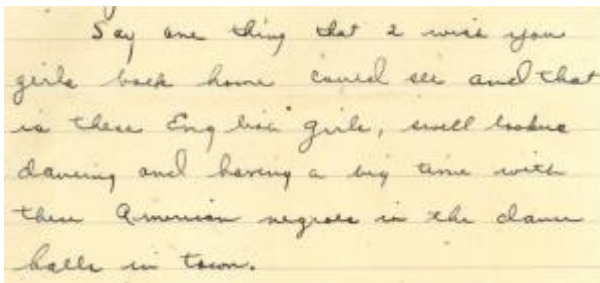 Say one thing that I wish you
girls back home could see and that
is these English girls, swell lookers
dancing and having a big time with
these American negroes in the dance
halls in town.